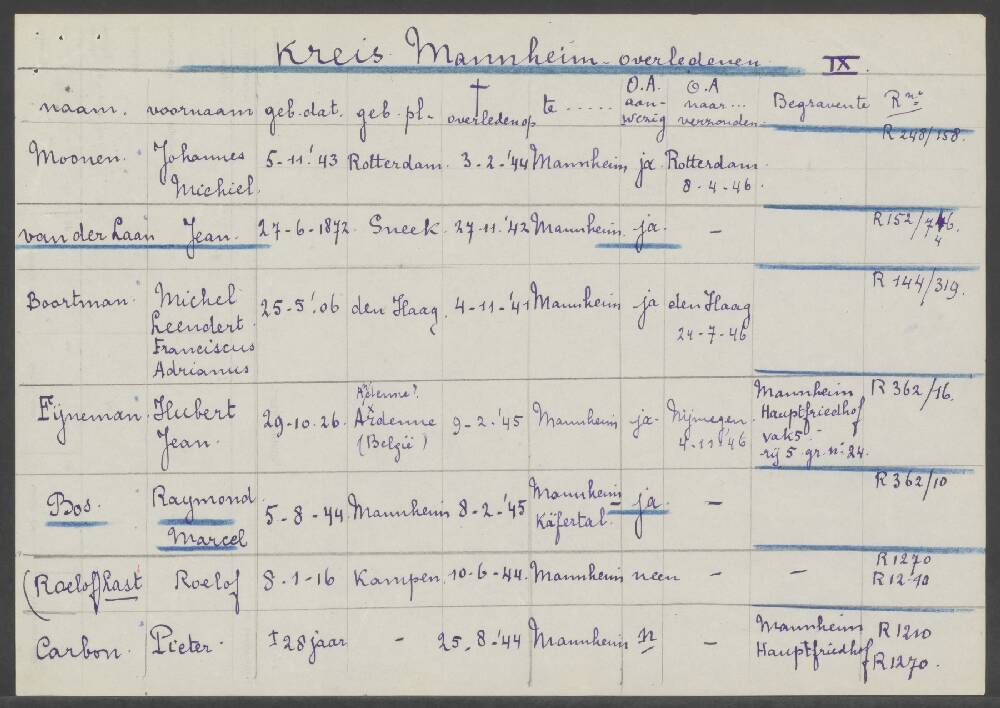 Kreis Mannheim - overledenen IX.
naam. voornaam geb. dat. geb. pl. † overleden op te ...... O.A. aanwezig O.A naar... verzonden. Begravente R nº
Moonen. Johannes Michiel. 5-11-'43 Rotterdam. 3-2-'44 Mannheim ja Rotterdam 8-4-46. R 248/158.
van der Laan Jean. 27-6-1872. Sneek. 27-11-'42 Mannheim. ja. – R 152/746. 4
Boortman. Michel Leendert Franciscus Adrianus 25-5-'06 den Haag. 4-11-'41 Mannheim ja den Haag 24-7-46 R 144/319.
Fijneman. Hubert Jean. 29-10-26. Ardenne (België) 9-2-'45 Mannheim ja. Nijmegen. 4-11-'46 Mannheim Hauptfriedhof vak 5. rij 5 gr. nº 24. R 362/16.
Bos. Raymond Marcel 5-8-44 Mannheim 8-2-'45 Mannheim Käfertal. ja. – R 362/10
(Roelof) Last Roelof 8-1-16 Kampen. 10-6-44. Mannheim neen – – R 1270 R 1210
Carbon. Pieter. ± 28 jaar – 25-8-'44 Mannheim n – Mannheim Hauptfriedhof R 1210 R 1270.